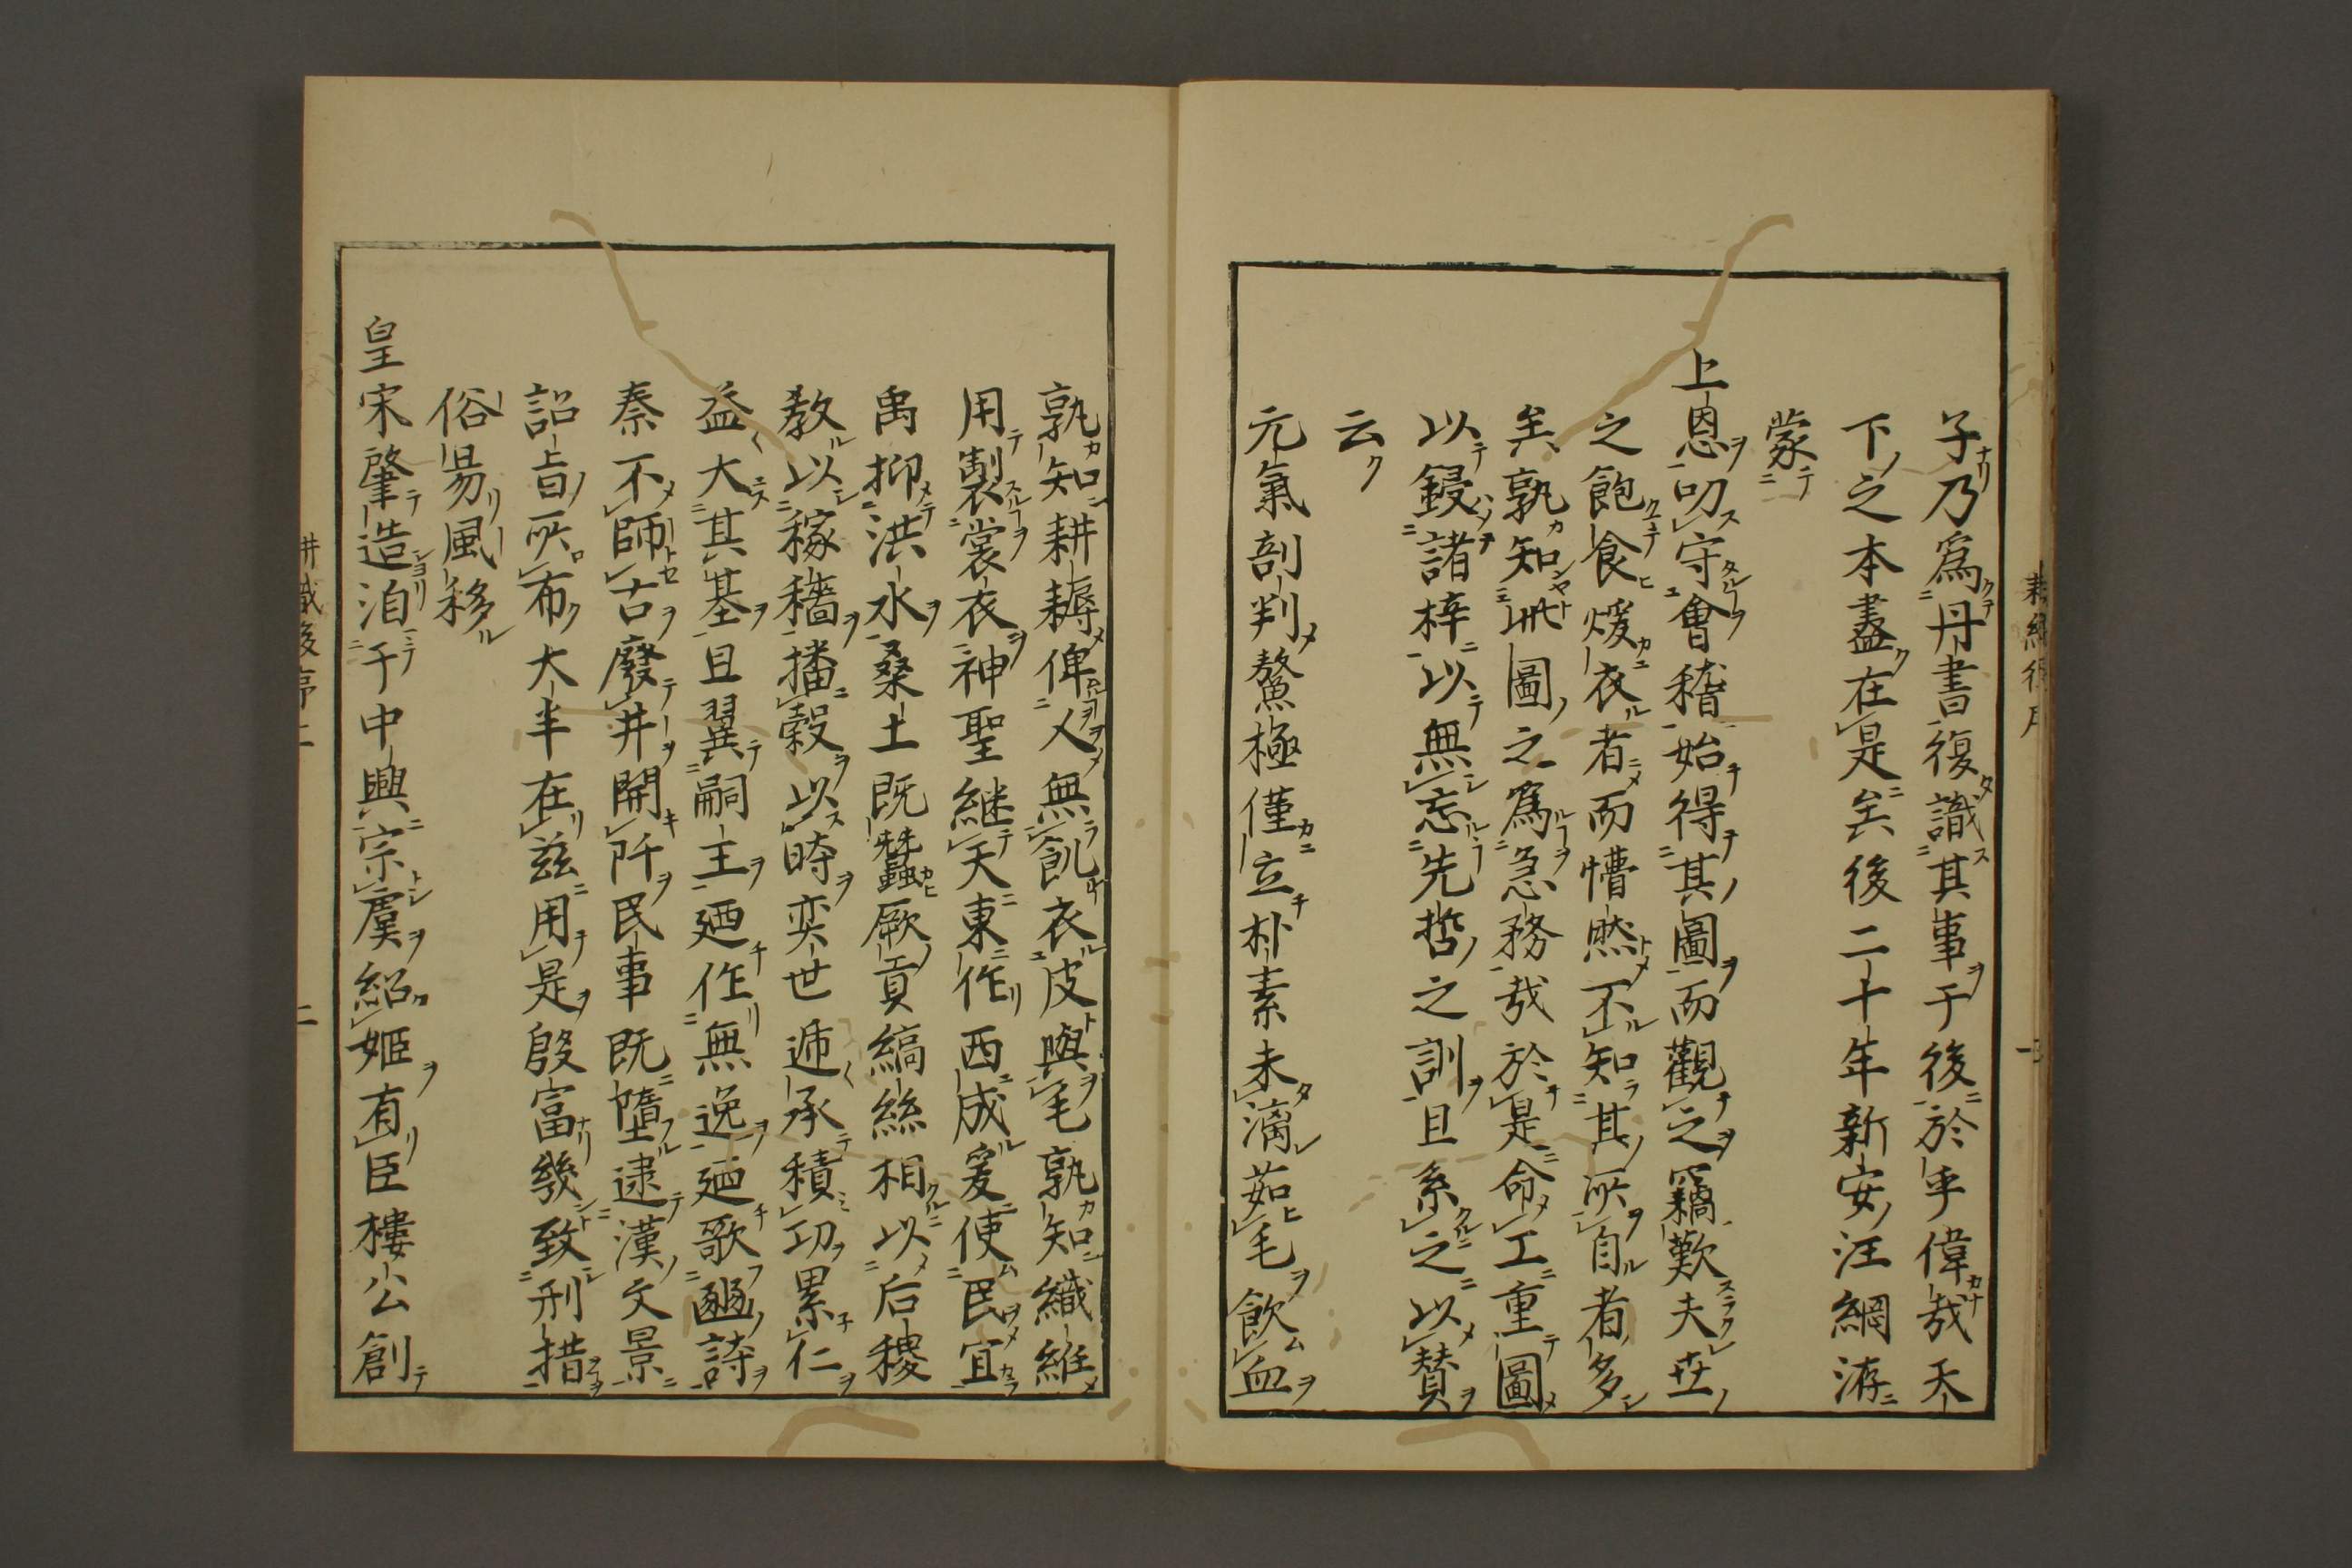 子乃爲丹書復識其事于後於乎偉哉天
下之本盡在是矣後二十年新安汪綱洊
蒙
上恩叨守會稽始得其圖而觀之竊歎夫世
之飽食煖衣者而懵然不知其所自者多
矣孰知此圖之爲急務哉於是命工重圖
以鋟諸梓以無忘先哲之訓且系之以賛
云
元氣剖判鰲極僅立朴素未漓茹毛飲血
孰知耕耨俾人無飢衣皮與毛孰知織維
用製裳衣神聖継天東作西成爰使民宜
禹抑洪水桑土既蠶厥貢縞絲相以后稷
教以稼穡播穀以時奕世遞承積功累仁
益大其基且翼嗣王廼作無逸廼歌豳詩
秦不師古廢井開阡民事既墮逮漢文景
詔旨所布大半在兹用是殷富幾致刑措
俗易風移
皇宋肇造洎于中興宗虞紹姬有臣樓公創
耕織後序 二
二